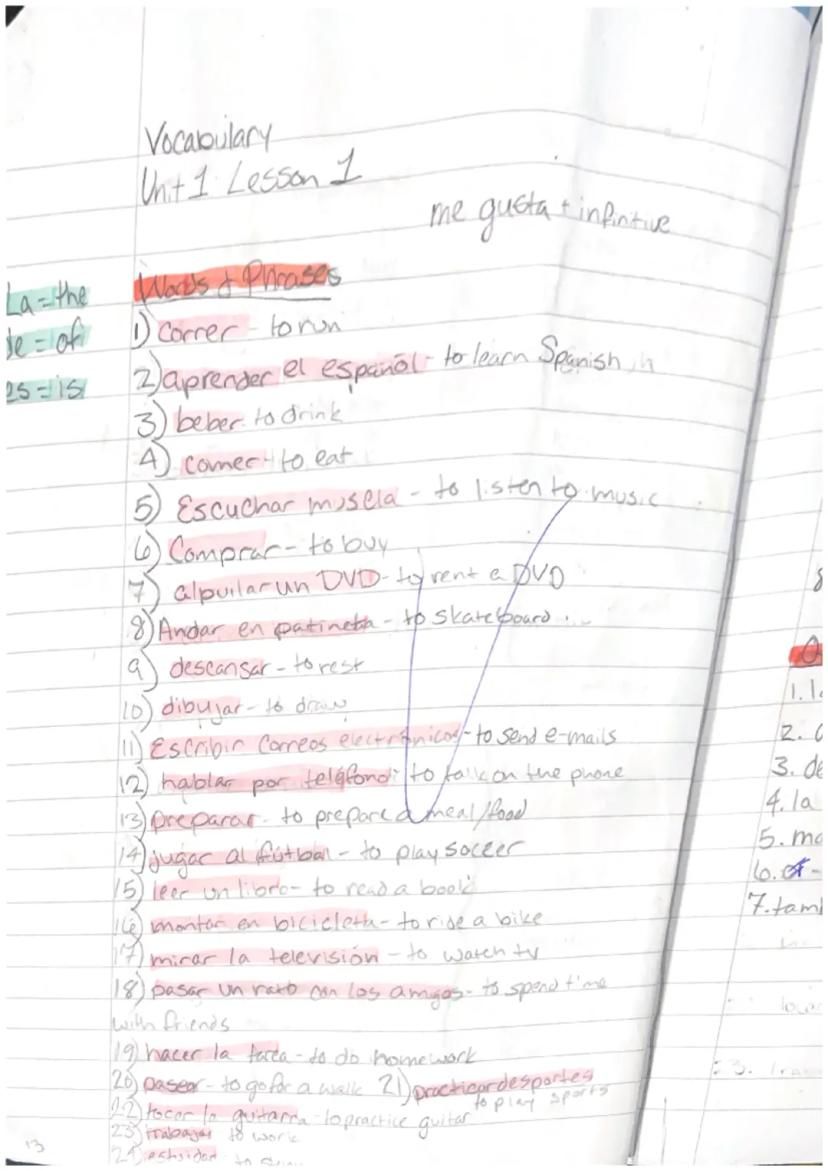 Vocabulary
Unit 1 Lesson 1
me gusta + infinitive
La = the
de = of
es = is
Words & Phrases
1) correr - to run
2) aprender el español - to learn Spanish
3) beber - to drink
4) comer - to eat
5) Escuchar muscia - to listen to music
6) Comprar - to buy
7) alpuilar un DVD - to rent a DVD
8) Andar en patineta - to skateboard
9) descansar - to rest
10) dibujar - to draw
11) Escribir Correos electrónicos - to send e-mails
12) hablar por teléfono: to talk on the phone
13) preparar - to prepare a meal/food
14) jugar al fútbal - to play soccer
15) leer un libro - to read a book
16) montar en bicicleta - to ride a bike
17) mirar la televisión - to watch tv
18) pasar un rato con los amigos - to spend time
with friends
19) hacer la tarea - to do homework
20) pasear - to go for a walk 21) practicar desportes
to play sports
22) tocar la guitarra - to practice guitar
23) trabajar to work
24)
13
1. la
2.
3. de
4. la
5. mo
6.
7. tam